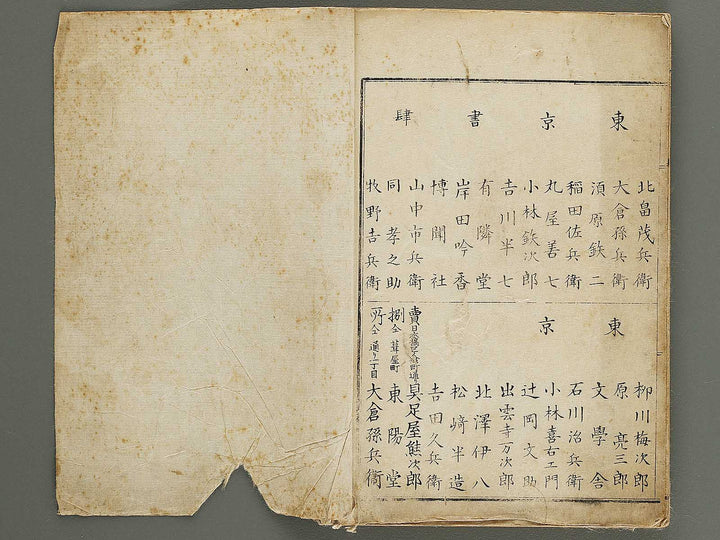 東京書肆
北畠茂兵衛
大倉孫兵衛
須原鉄二
稲田佐兵衛
丸屋善七
小林鉄次郎
吉川半七
有隣堂
岸田吟香
博聞社
山中市兵衛
同孝之助
牧野吉兵衛
東京
柳川梅次郎
原亮三郎
文學舎
石川治兵衛
小林喜右エ門
辻岡文助
出雲寺万次郎
北澤伊八
松﨑半造
吉田久兵衛
賣捌所
具足屋熊次郎
仝葺屋町 東陽堂
仝通り一丁目 大倉孫兵衛